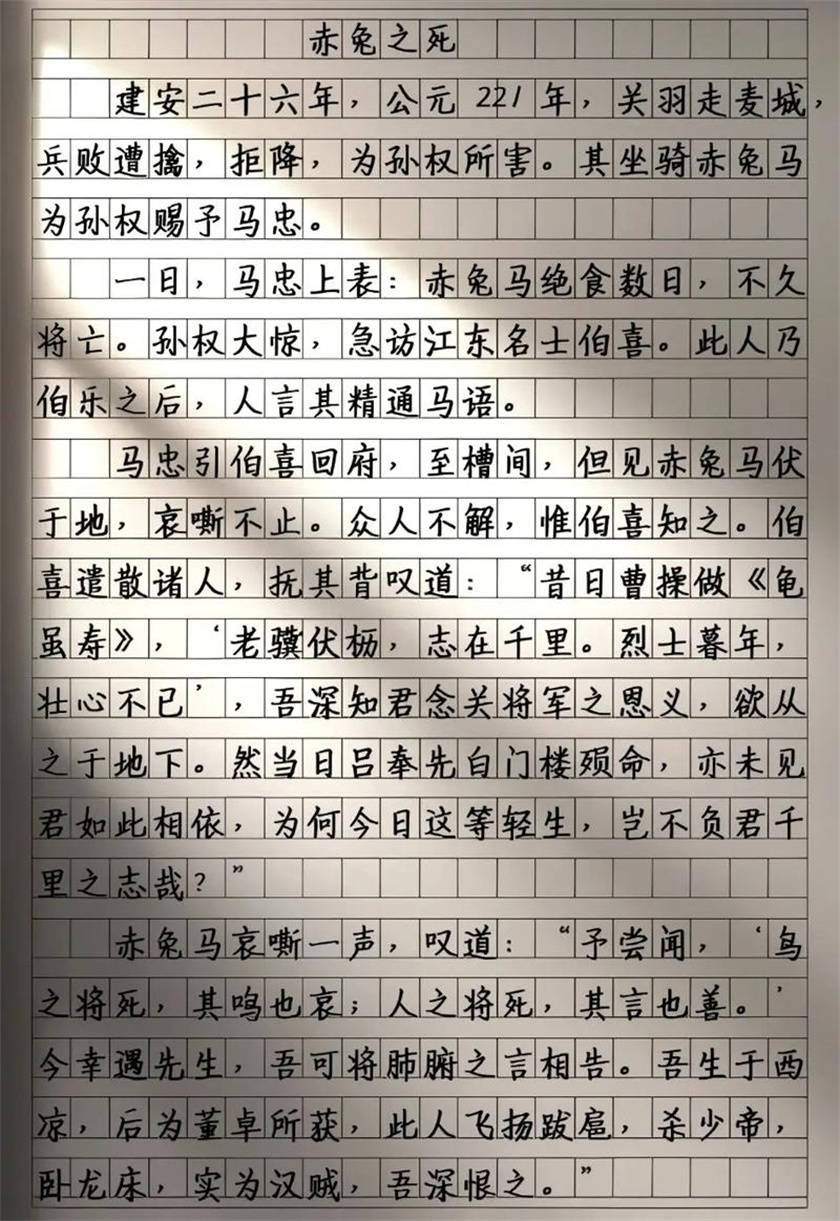 赤兔之死
建安二十六年，公元221年，关羽走麦城，
兵败遭擒，拒降，为孙权所害。其坐骑赤兔马
为孙权赐予马忠。
一日，马忠上表：赤兔马绝食数日，不久
将亡。孙权大惊，急访江东名士伯喜。此人乃
伯乐之后，人言其精通马语。
马忠引伯喜回府，至槽间，但见赤兔马伏
于地，哀嘶不止。众人不解，惟伯喜知之。伯
喜遣散诸人，抚其背叹道：“昔日曹操做《龟
虽寿》，‘老骥伏枥，志在千里。烈士暮年，
壮心不已’，吾深知君念关将军之恩义，欲从
之于地下。然当日吕奉先白门楼殒命，亦未见
君如此相依，为何今日这等轻生，岂不负君千
里之志哉？”
赤兔马哀嘶一声，叹道：“予尝闻，‘鸟
之将死，其鸣也哀；人之将死，其言也善。’
今幸遇先生，吾可将肺腑之言相告。吾生于西
凉，后为董卓所获，此人飞扬跋扈，杀少帝，
卧龙床，实为汉贼，吾深恨之。”